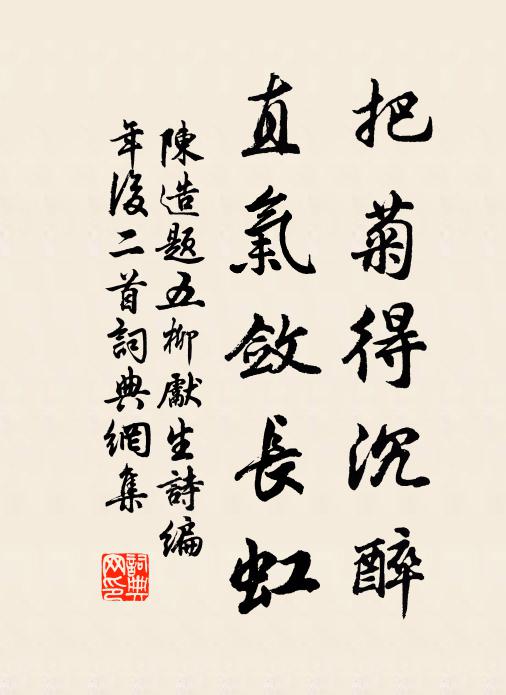 把菊得沉醉
直氣斂長虹
陳造題五柳獻生詩編
年後二首詞典網集
詞典網印